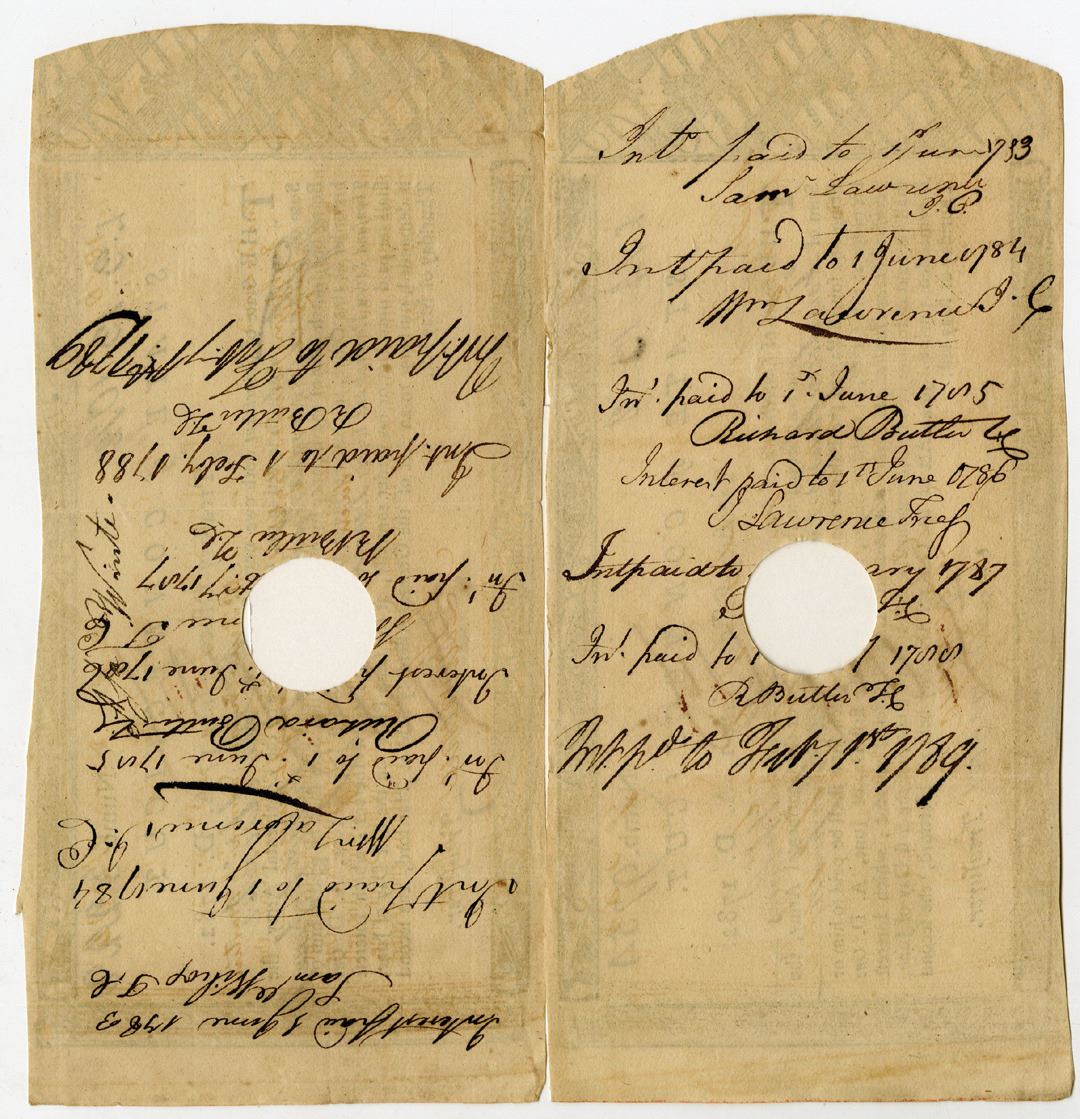 Int paid to 1 June 1783
Saml Lawrence
J. C.
Int paid to 1 June 1784
Wm Lawrence J. C
Int. paid to 1st June 1785
Richard Butler
Interest paid to 1st June 1786
Lawrence
Int paid to ary 1787
Int. paid to 1 y 1788
R Butler
Int pd. to Feby 1st 1789.
Interest paid 1 June 1783
Sam
Int paid to 1 June 1784
Wm Lawrence J. C
Int. paid to 1st June 1785
Richard Butler
Interest p 1st June 1786
nce
Int. paid to y 1787
R Butler
Int. paid to 1 Feby. 1788
R Butler
Int. paid to Feby 1st 1789